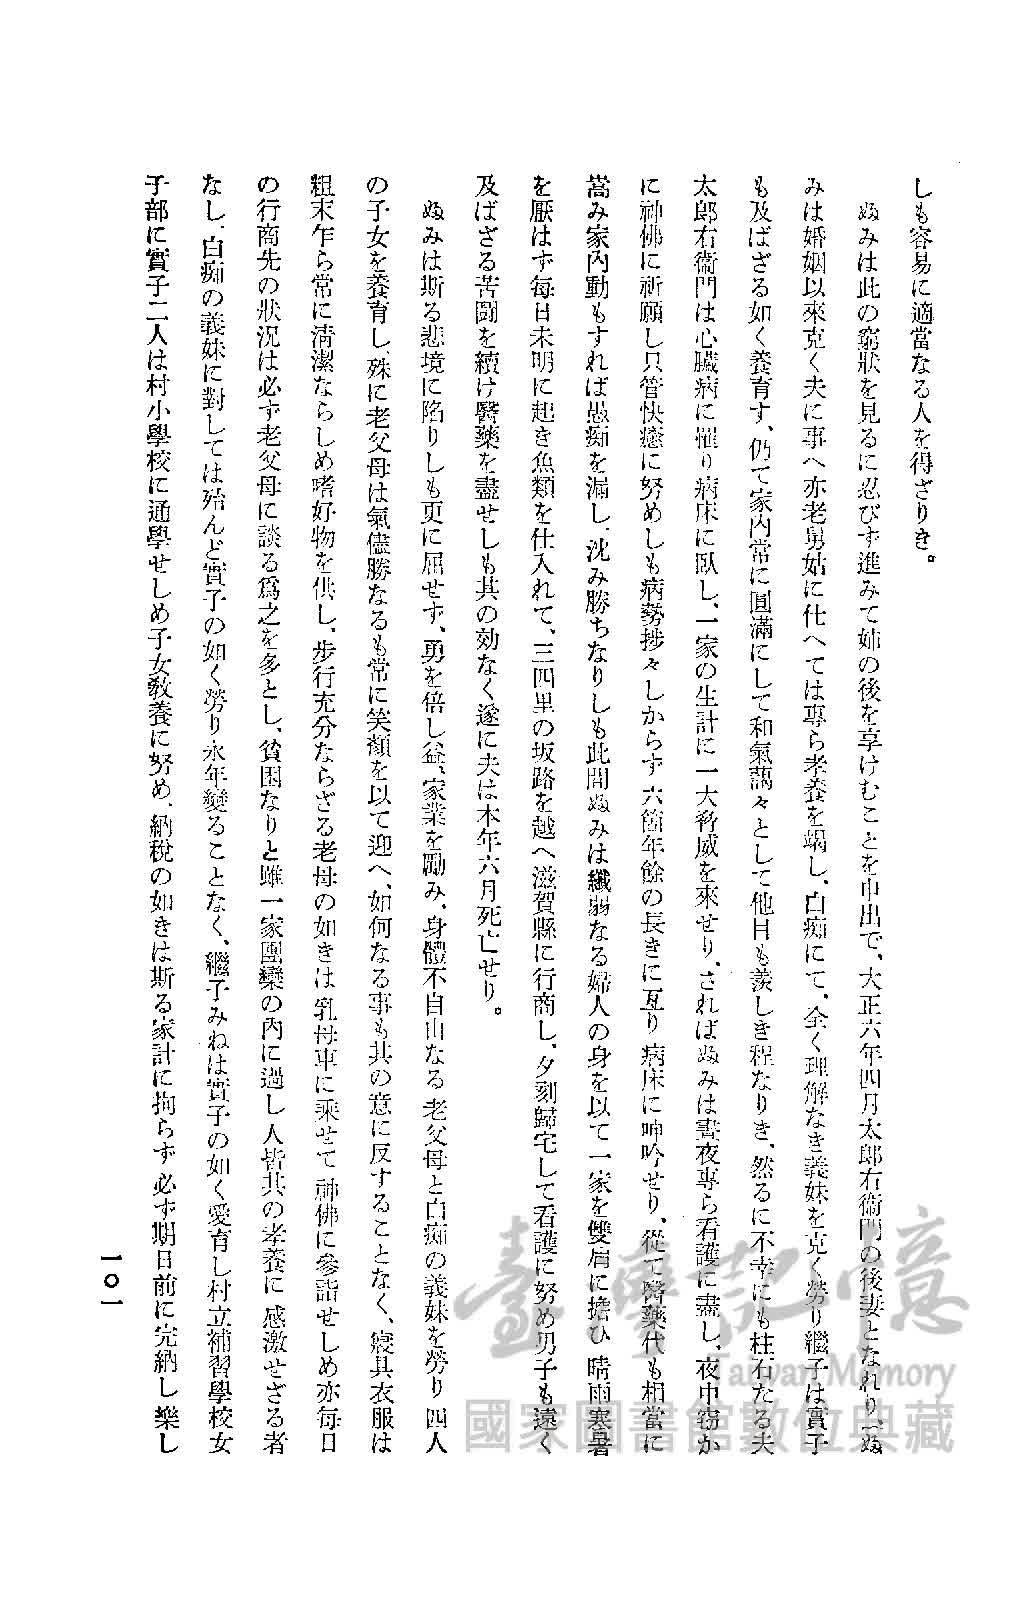 しも容易に適當なる人を得ざりき。
ぬみは此の窮狀を見るに忍びず進みて姉の後を享けむことを申出で、大正六年四月太郎右衞門の後妻となれり、ぬ
みは婚姻以來克く夫に事へ亦老舅姑に仕へては專ら孝養を竭し、白痴にて、全く理解なき義妹を克く勞り繼子は實子
も及ばざる如く養育す、仍て家內常に圓滿にして和氣藹々として他目も羨しき程なりき、然るに不幸にも柱石たる夫
太郎右衞門は心臟病に罹り病床に臥し、一家の生計に一大脅威を來せり、さればぬみは晝夜專ら看護に盡し、夜中窃か
に神佛に祈願し只管快癒に努めしも病勢捗々しからず六箇年餘の長きに亙り病床に呻吟せり、從て醫藥代も相當に
嵩み家內動もすれば愚痴を漏し、沈み勝ちなりしも此間ぬみは纖弱なる婦人の身を以て一家を雙肩に擔ひ晴雨寒暑
を厭はず每日未明に起き魚類を仕入れて、三四里の坂路を越へ滋賀縣に行商し、夕刻歸宅して看護に努め男子も遠く
及ばざる苦鬪を續け醫藥を盡せしも其の効なく遂に夫は本年六月死亡せり。
ぬみは斯る悲境に陷りしも更に屈せず、勇を倍し益、家業を勵み、身體不自由なる老父母と白痴の義妹を勞り四人
の子女を養育し、殊に老父母は氣儘勝なるも常に笑顏を以て迎へ、如何なる事も其の意に反することなく、寢具衣服は
粗末乍ら常に淸潔ならしめ嗜好物を供し、步行充分ならざる老母の如きは乳母車に乘せて神佛に參詣せしめ亦每日
の行商先の狀況は必ず老父母に談る爲之を多とし、貧困なりと雖一家團欒の內に過し人皆其の孝養に感激せざる者
なし、白痴の義妹に對しては殆んど實子の如く勞り永年變ることなく、繼子みねは實子の如く愛育し村立補習學校女
子部に實子二人は村小學校に通學せしめ子女敎養に努め、納稅の如きは斯る家計に拘らず必ず期日前に完納し樂し
一〇一
臺灣記憶
Taiwan Memory
國家圖書館數位典藏